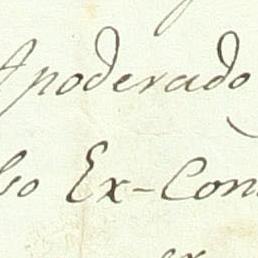 Apoderado
so Ex-Con
ex